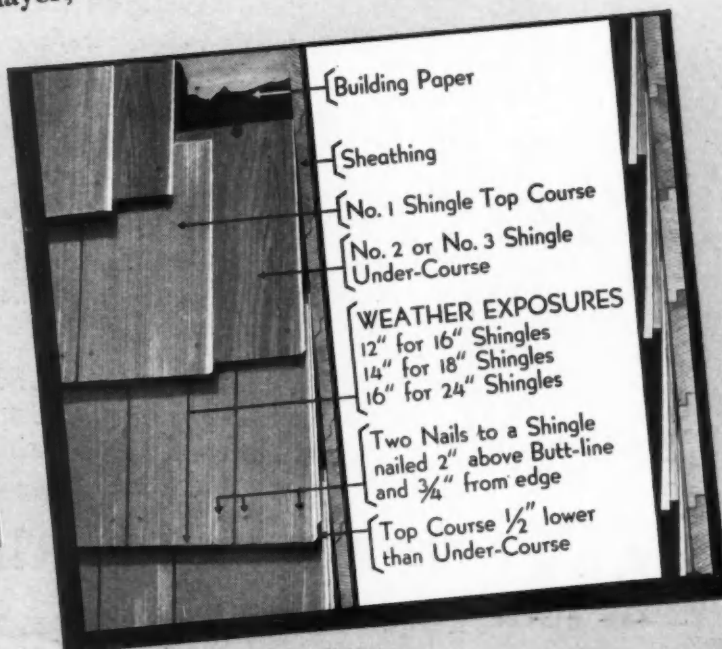 Building Paper
Sheathing
No. 1 Shingle Top Course
No. 2 or No. 3 Shingle
Under-Course
WEATHER EXPOSURES
12" for 16" Shingles
14" for 18" Shingles
16" for 24" Shingles
Two Nails to a Shingle
nailed 2" above Butt-line
and ¾" from edge
Top Course ½" lower
than Under-Course